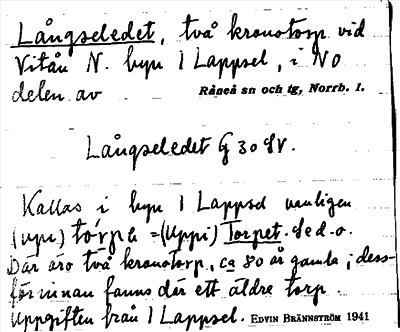 Långseledet, två kronotorp vid
Vitån N. byn 1 Lappsel, i NO
delen av Råneå sn och tg, Norrb. l.
Långseledet G 30 SV.
Kallas i byn 1 Lappsel vanligen
(upi) tórpe = (Uppi) Torpet. Se d. o.
Där äro två kronotorp, ca 80 år gamla; dess-
förinnan fanns där ett äldre torp.
Uppgiften från 1 Lappsel. EDVIN BRÄNNSTRÖM 1941